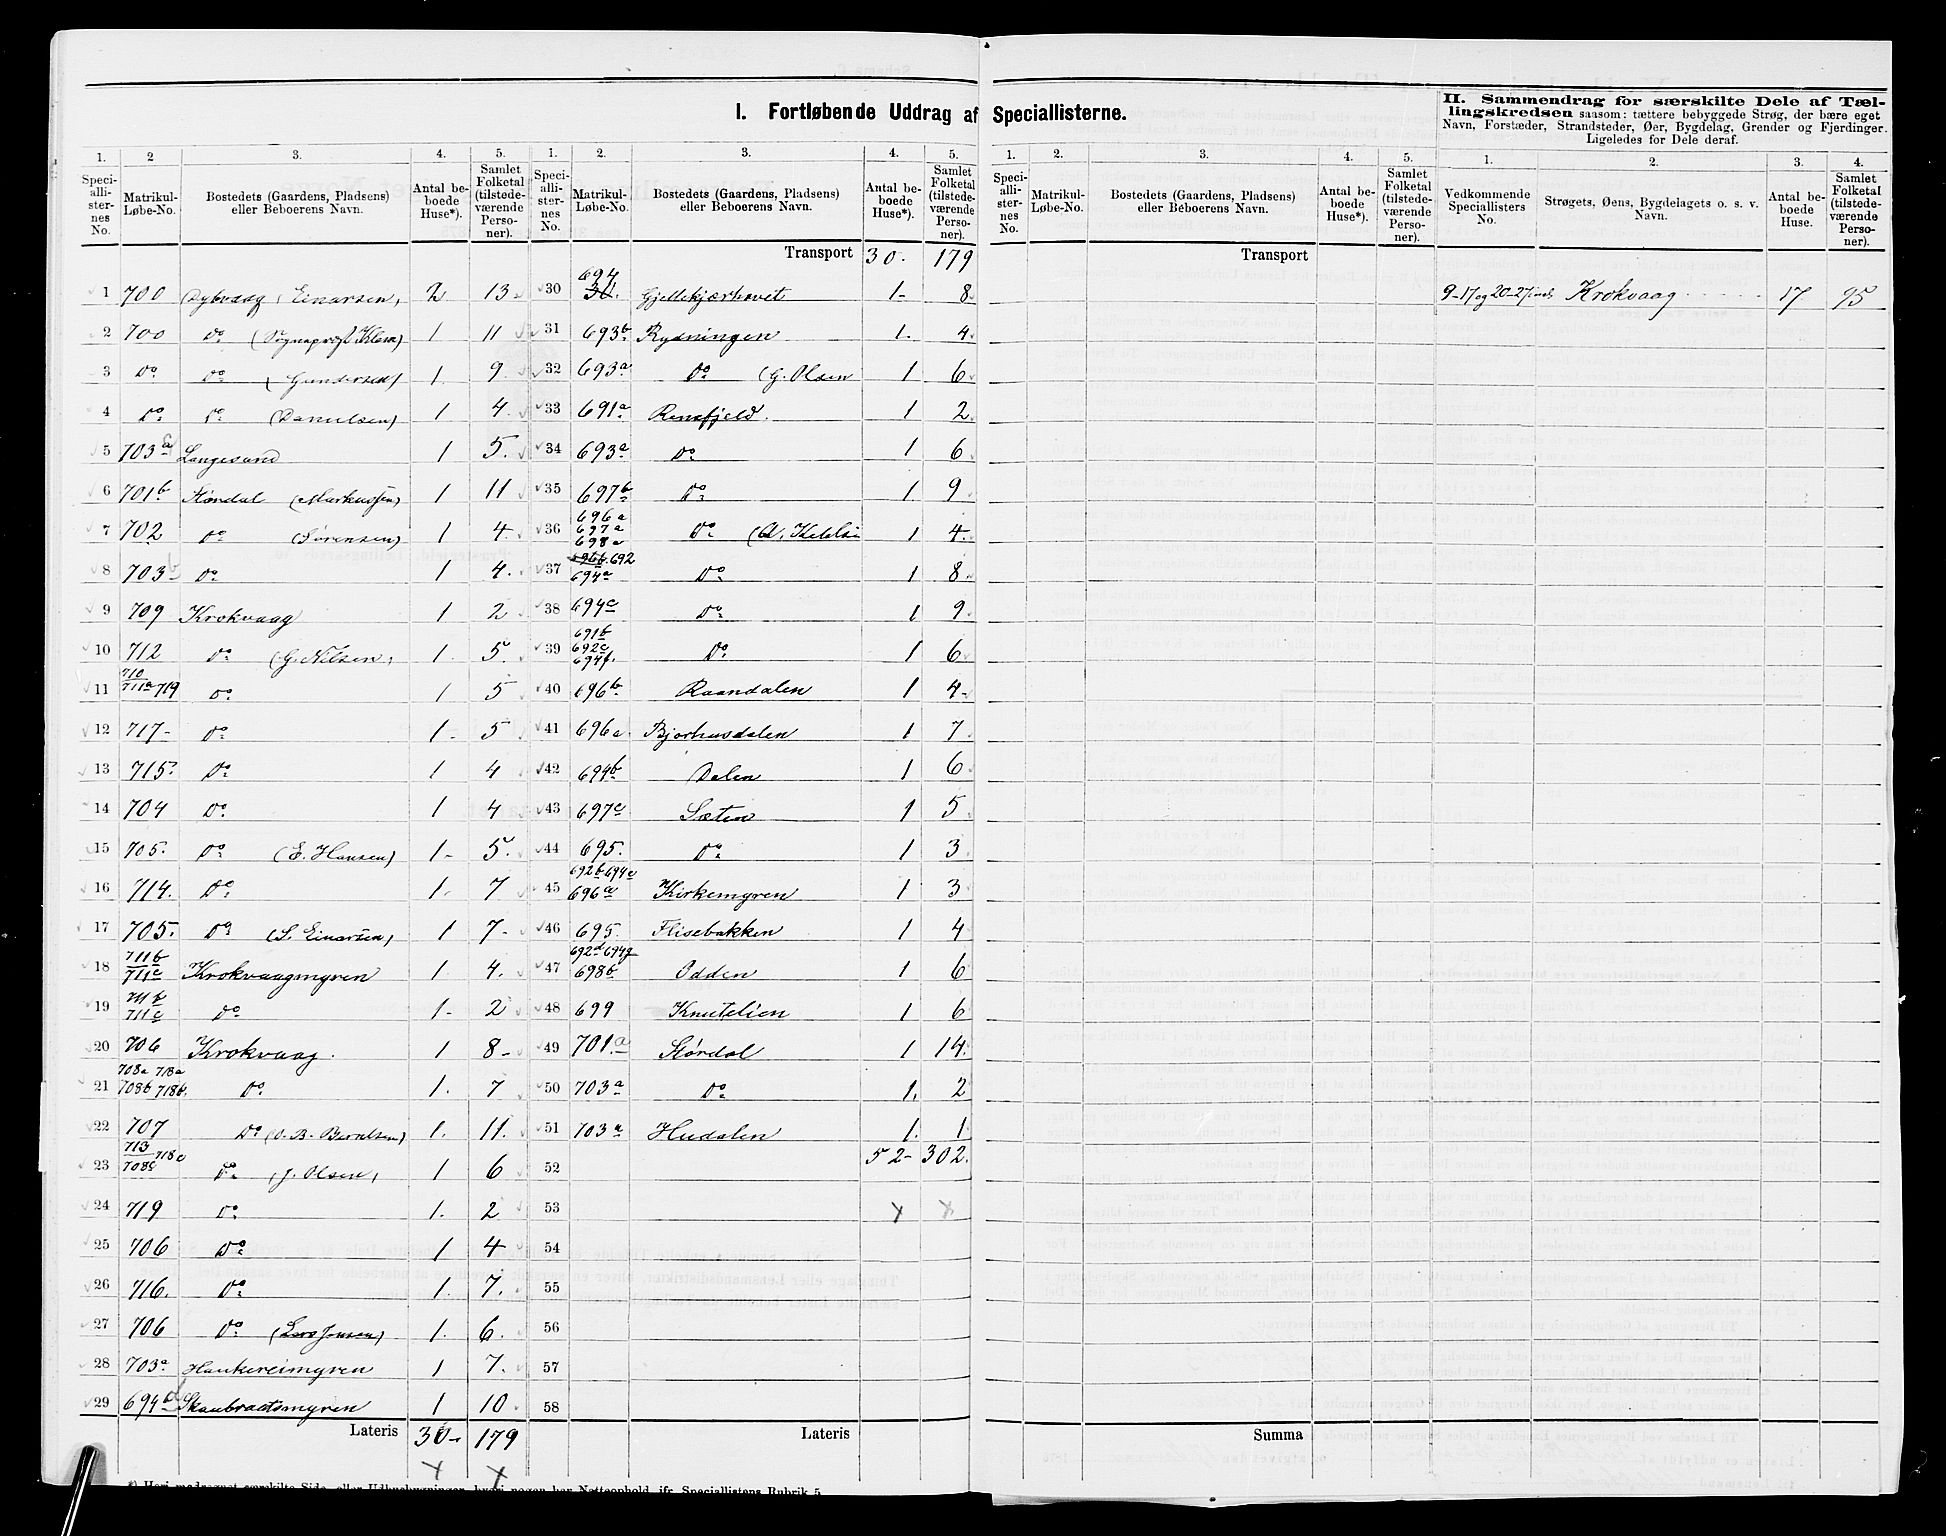 I. Fortløbende Uddrag af Speciallisterne.
II. Sammendrag for særskilte Dele af Tæl-
lingskredsen saasom: tættere bebyggede Strøg, der bære eget
Navn, Forstæder, Strandsteder, Øer, Bygdelag, Grender og Fjerdinger.
Ligeledes for Dele deraf.
1. 2 3. 4. 5.
Speciallisternes No. Matrikul-Løbe-No. Bostedets (Gaardens, Pladsens) eller Beboerens Navn. Antal beboede Huse*). Samlet Folketal (tilstedeværende Personer).
1 700 Dybvaag (Einarsen) 2 13
2 700 Do (Sognaprest Klem) 1 11
3 Do Do (Gundersen) 1. 9
4 Do Do (Danielsen) 1 4.
5 703a Langesund 1 5.
6 701b Størdal (Markussen) 1 11
7 702 Do (Sørensen) 1 4.
8 703b Do 1 4.
9 709 Krokvaag 1 2
10 712 Do (G. Nilsen) 1. 5.
11 710 711a 719 Do 1 5
12 717- Do 1- 5
13 715. Do 1 4
14 704 Do 1 4
15 705. Do (E. Hansen) 1- 5.
16 714. Do 1. 7
17 705. Do (S. Einarsen) 1 7-
18 711b 711c Krokvaagmyren 1 4.
19 711b 711c Do 1- 2
20 706 Krokvaag. 1 8-
21 708a 718a 708b 718b. Do 1. 7
22 707 Do (O. B. Berntsen) 1. 11.
23 713 708c 718c Do (J. Olsen) 1 6
24 719 Do 1. 2
25 706 Do 1 4
26 716. Do 1. 7.
27 706 Do (Lars Jensen) 1. 6.
28 703a Haukereimyren 1 7.
29 694d Skaubraatsmyren 1 10
Lateris 30- 179
1. 2. 3. 4. 5.
Speciallisternes No. Matrikul-Løbe-No. Bostedets (Gaardens, Pladsens) eller Beboerens Navn. Antal beboede Huse*). Samlet Folketal (tilstedeværende Personer).
Transport 30. 179
30 694 Gjellekjærhavet 1- 8
31 693b Rydningen 1. 4.
32 693a Do (G. Olsen 1 6
33 691a Rensfjeld. 1 2
34 693a Do 1 6
35 697b Do 1. 9
36 696a 697a 698a Do 1 4.
37 696b. 692 694a Do 1 8.
38 694c Do 1 9.
39 691b 692c 694f. Do 1 6
40 696b Raandalen 1 4-
41 696a Bjorhusdalen 1 7
42 694b Dalen 1 6
43 697c Sæten 1 5
44 695. Do 1 3
45 692b 694e 696a Kirkemyren 1 3
46 695. Flisebakken 1 4
47 692d 694g 698b Odden 1 6
48 699 Knutelien 1 6
49 701.a Størdal 1 14.
50 703a Do 1. 2
51 703a Hudalen 1. 1
52 52- 302.
53
54
55
56
57
58
Lateris
1. 2. 3. 4. 5.
Speciallisternes No. Matrikul-Løbe-No. Bostedets (Gaardens, Pladsens) eller Beboerens Navn. Antal beboede Huse*). Samlet Folketal (tilstedeværende Personer).
Transport
Summa
1. 2. 3. 4.
Vedkommende Speciallisters No. Strøgets, Øens, Bygdelagets o. s. v. Navn. Antal beboede Huse. Samlet Folketal (tilstedeværende Personer).
9-17 og 20-27 incl. Krokvaag 17 95